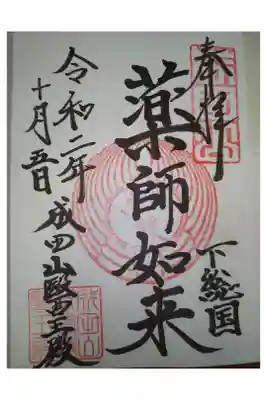 奉拝
下総国
薬師如来
令和二年
十月五日
成田山医王殿